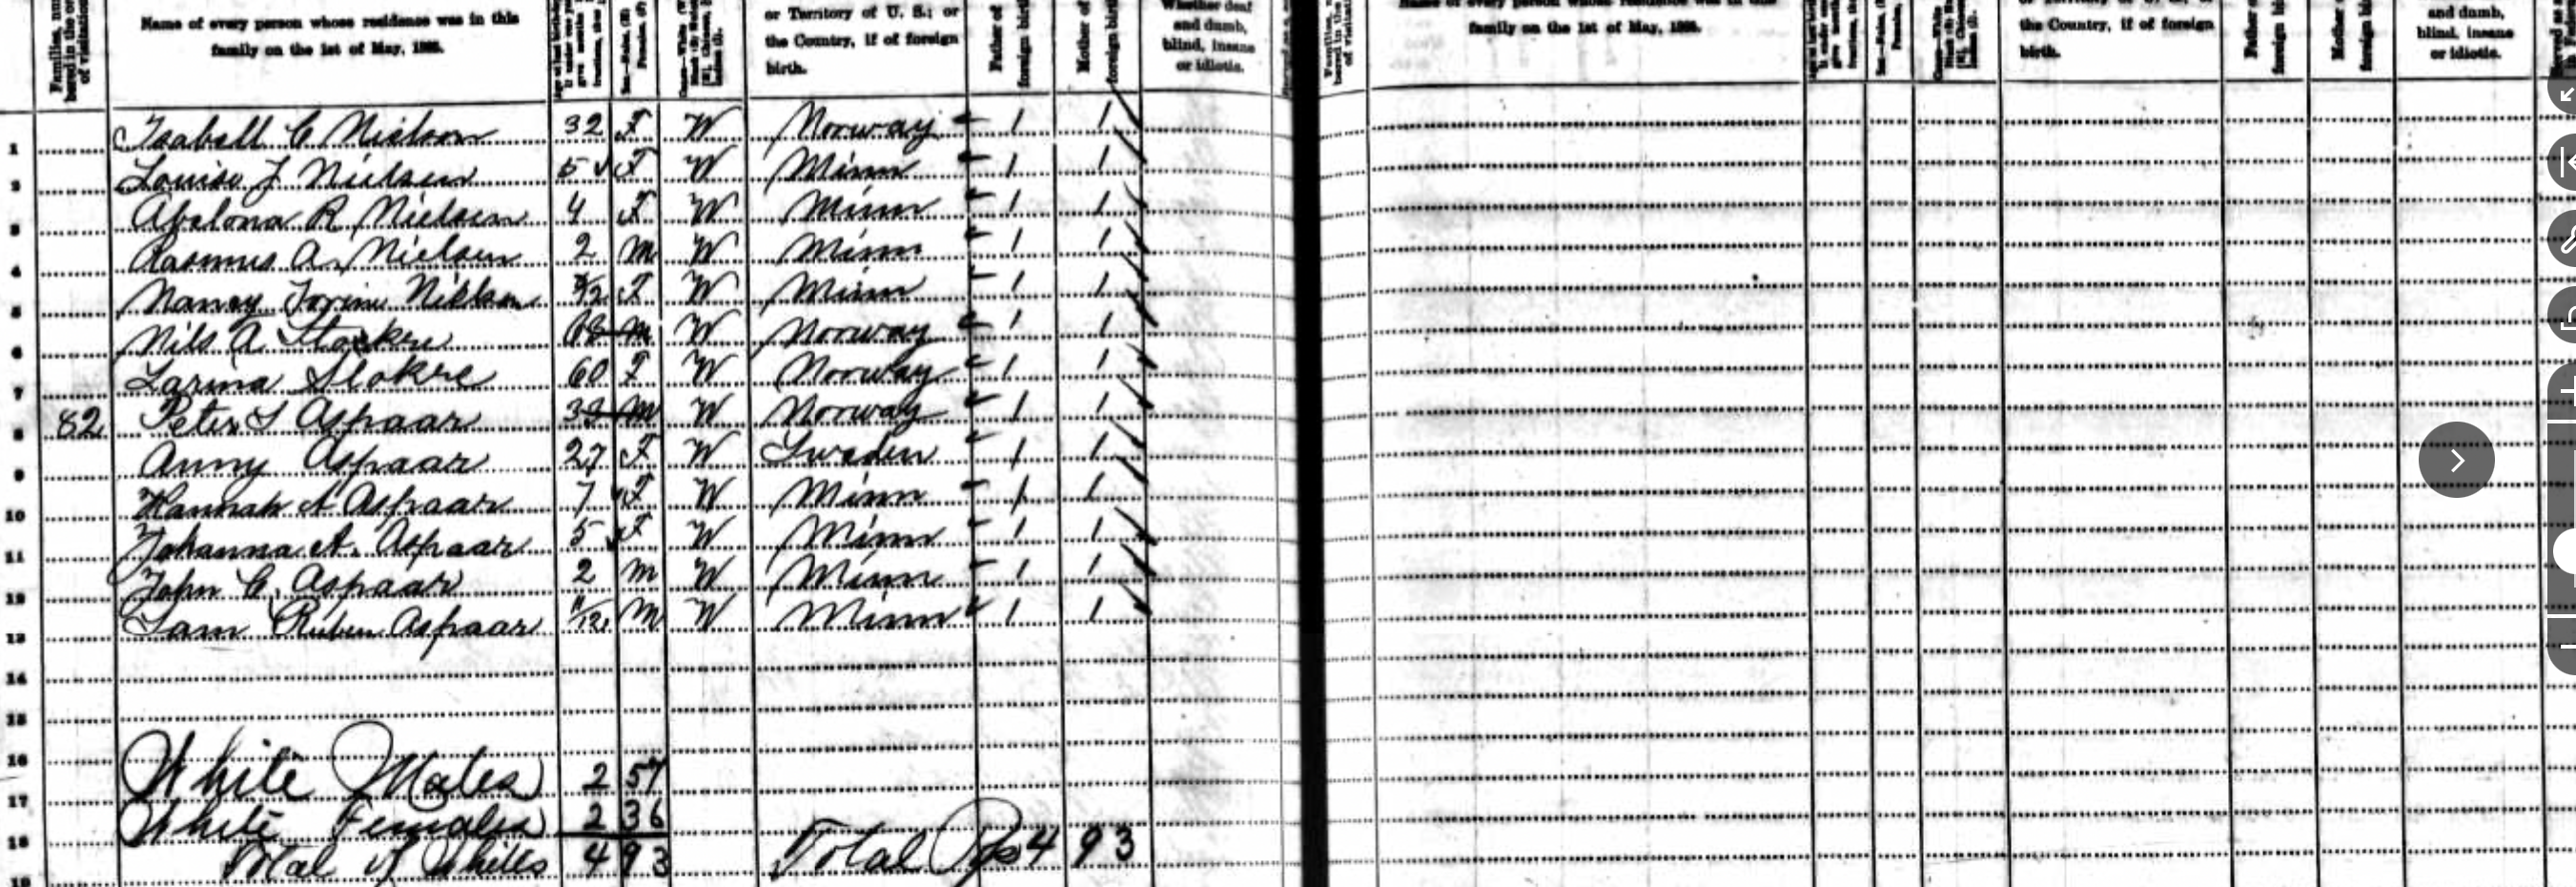 Families, num
bered in the or
of visitation
Name of every person whose residence was in this
family on the 1st of May, 1885.
or Territory of U. S.; or
the Country, if of foreign
birth.
Father of
foreign birth
Mother of
foreign birth
Whether deaf
and dumb,
blind, insane
or idiotic.
family on the 1st of May, 1885.
the Country, if of foreign
birth.
Father o
foreign bi
Mother o
foreign bi
and dumb,
blind, insane
or idiotic.
1 Isabell C Nielsen 32 F W Norway 1 1
2 Louise J Nielsen 5 F W Minn 1 1
3 Abelona R Nielsen 4 F W Minn 1 1
4 Rasmus A. Nielsen 2 M W Minn 1 1
5 Nancy Torine Nielsen F W Minn 1 1
6 Nils A 68 M W Norway 1 1
7 Larina Slokre 60 F W Norway 1 1
8 82 Peter S Aspaar M W Norway 1 1
9 Anny Aspaar 27 F W Sweden 1 1
10 Hannah A Aspaar 7 F W Minn 1 1
11 Johanna A. Aspaar 5 F W Minn 1 1
12 John C. Aspaar 2 M W Minn 1 1
13 Sam Ruben Aspaar 11/12 M W Minn 1 1
14
15
16
17 White Males 257
18 White Females 236
19 Total of Whites 493 Total 493